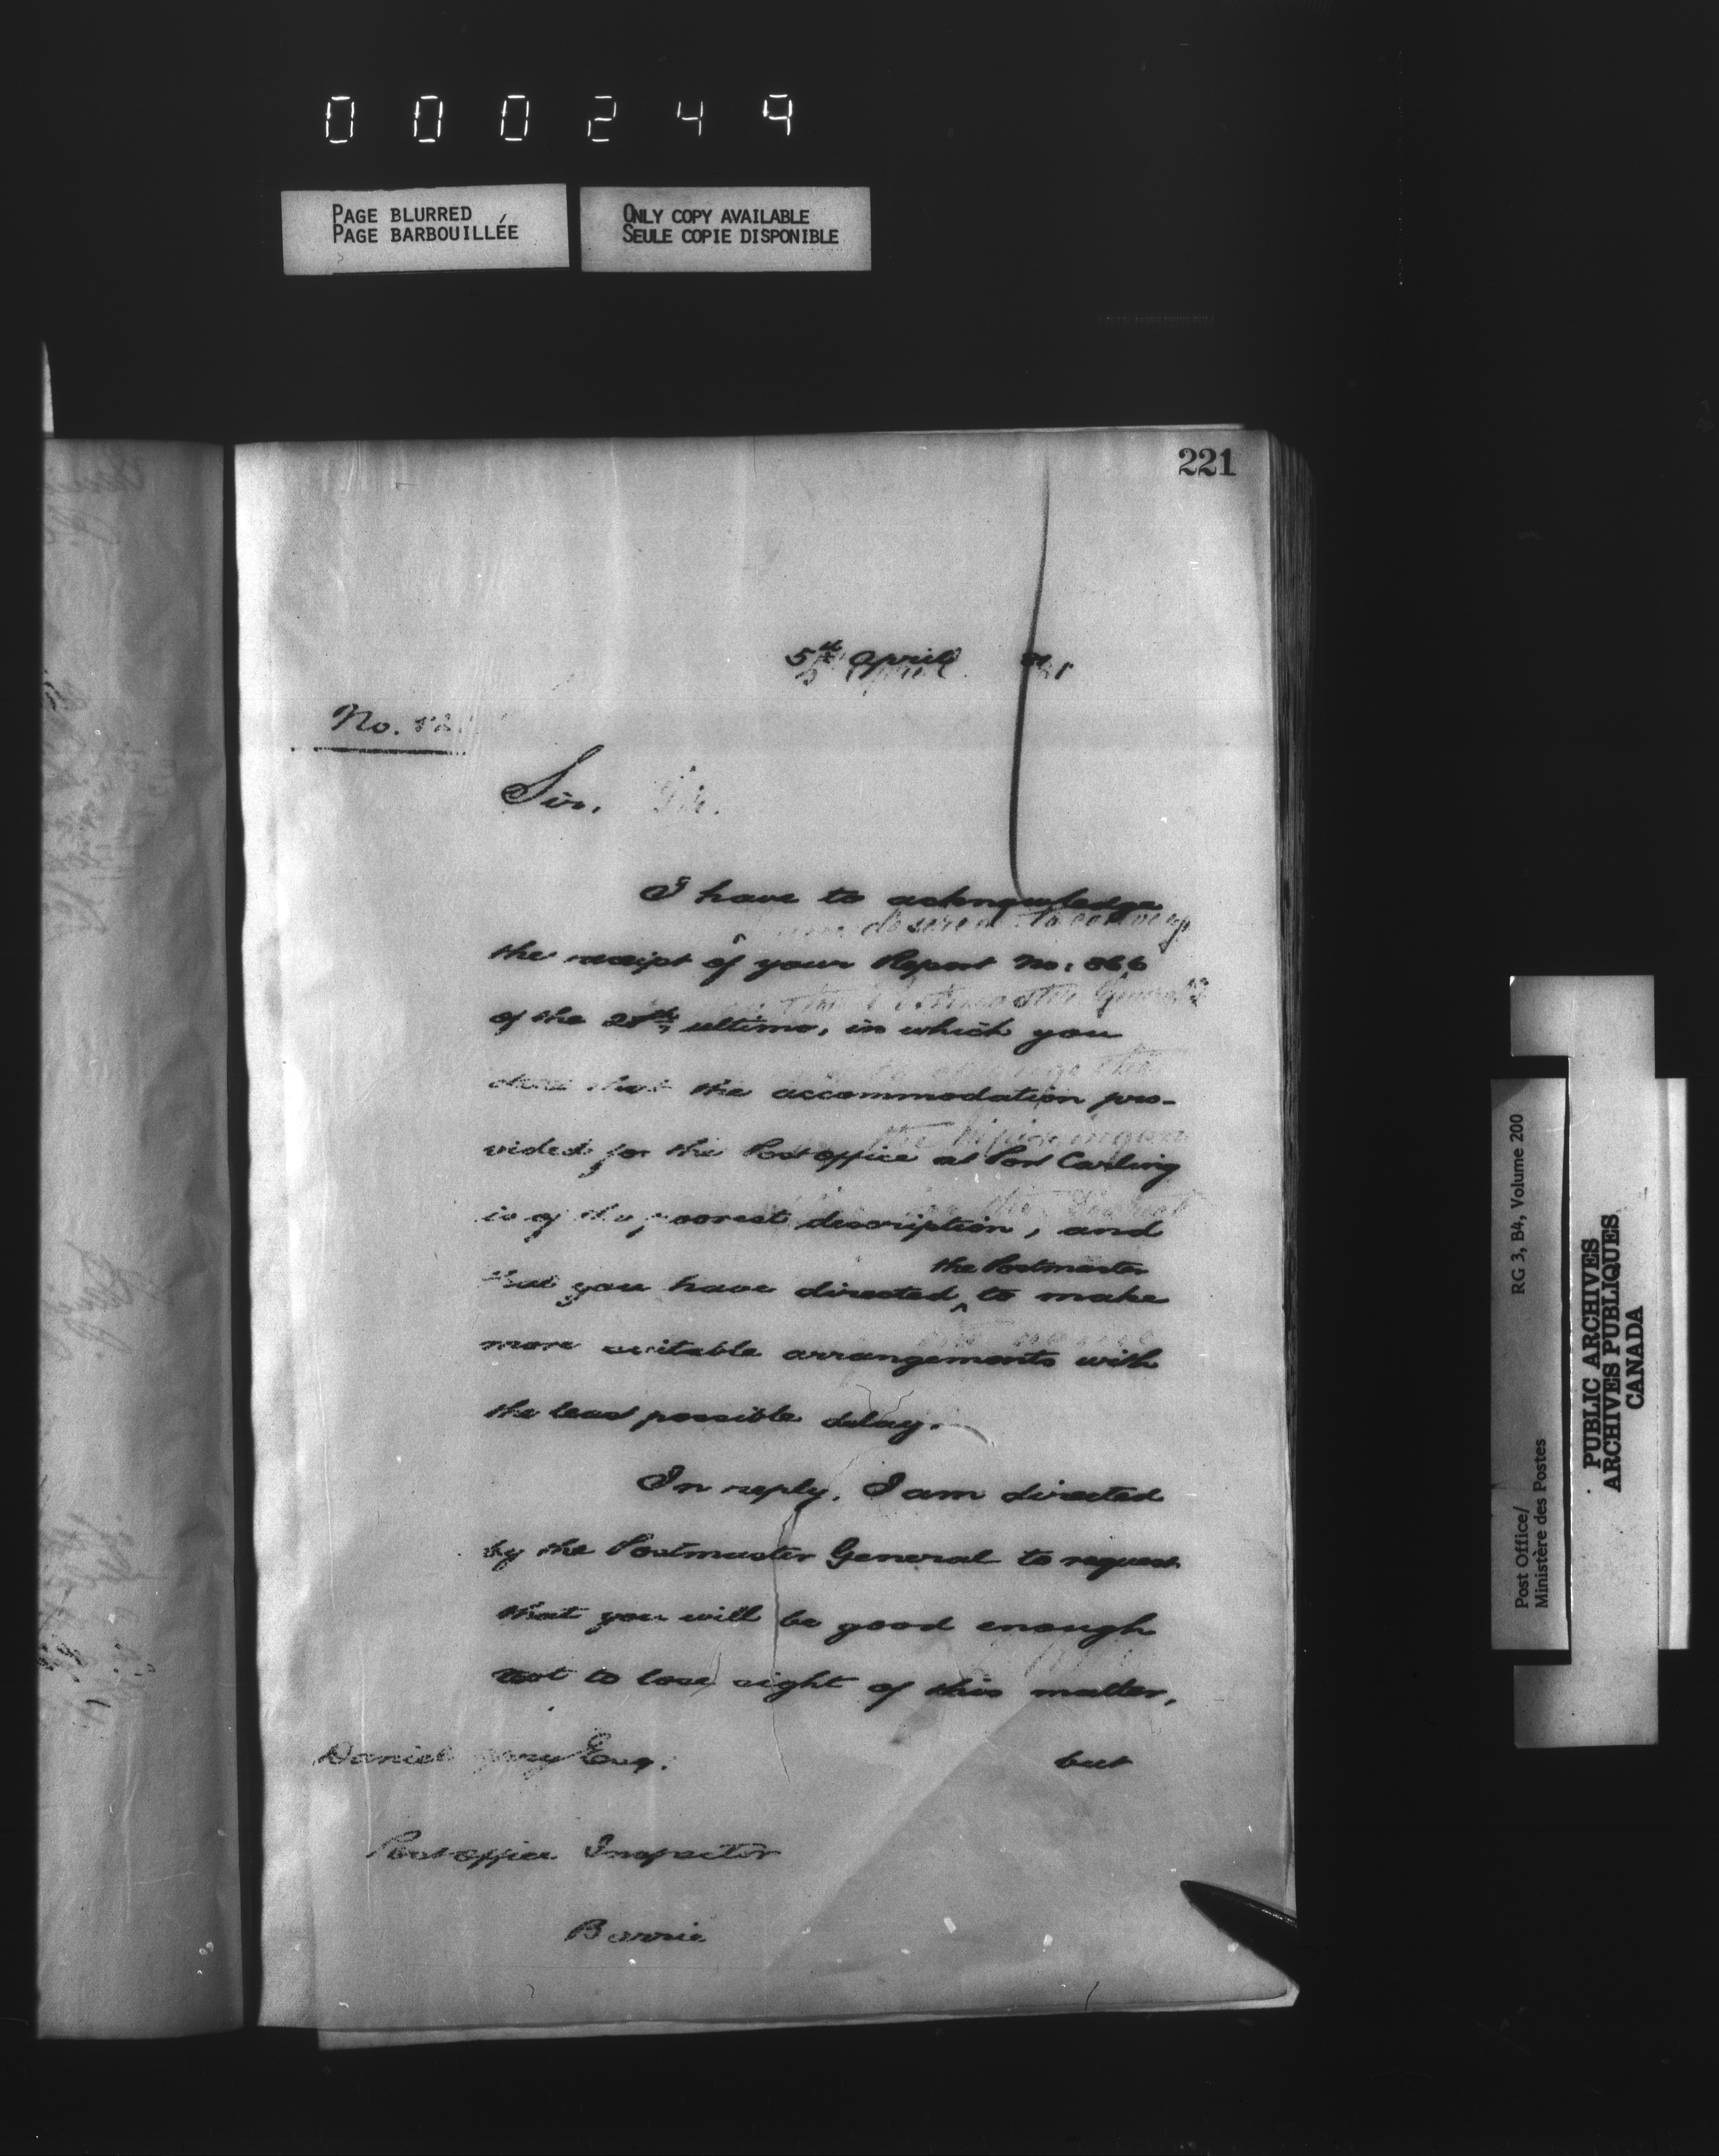 000249
PAGE BLURRED
PAGE BARBOUILLÉE
ONLY COPY AVAILABLE
SEULE COPIE DISPONIBLE
221
5th April 81
No.
Sir,
I have to acknowledge
the receipt of your Report No: 866
of the 28th ultimo, in which you
state that the accommodation pro-
vided for the Post office at Port Carling
is of the poorest description, and
that you have directed ^ the Postmaster to make
more suitable arrangements with
the least possible delay.
In reply, I am directed
by the Postmaster General to request
that you will be good enough
not to lose sight of this matter,
but
Daniel Esq.
Post office Inspector
Barrie
Post Office/ RG 3, B4, Volume 200
Ministère des Postes
PUBLIC ARCHIVES
ARCHIVES PUBLIQUES
CANADA